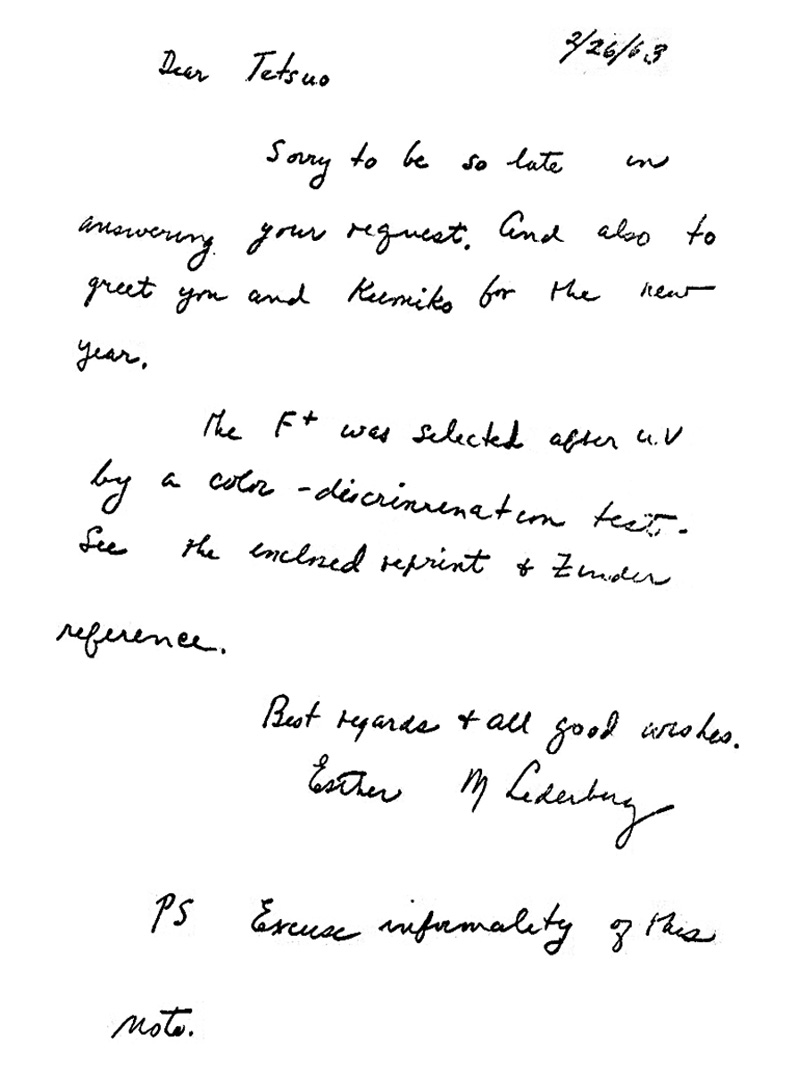 2/26/63
Dear Tetsuo
Sorry to be so late in
answering your request. And also to
greet you and Kumiko for the new
year.
The F+ was selected after u.V
by a color-discrimination test.
See the enclosed reprint & Zinder
reference.
Best regards & all good wishes.
Esther M Lederberg
PS Excuse informality of this
note.